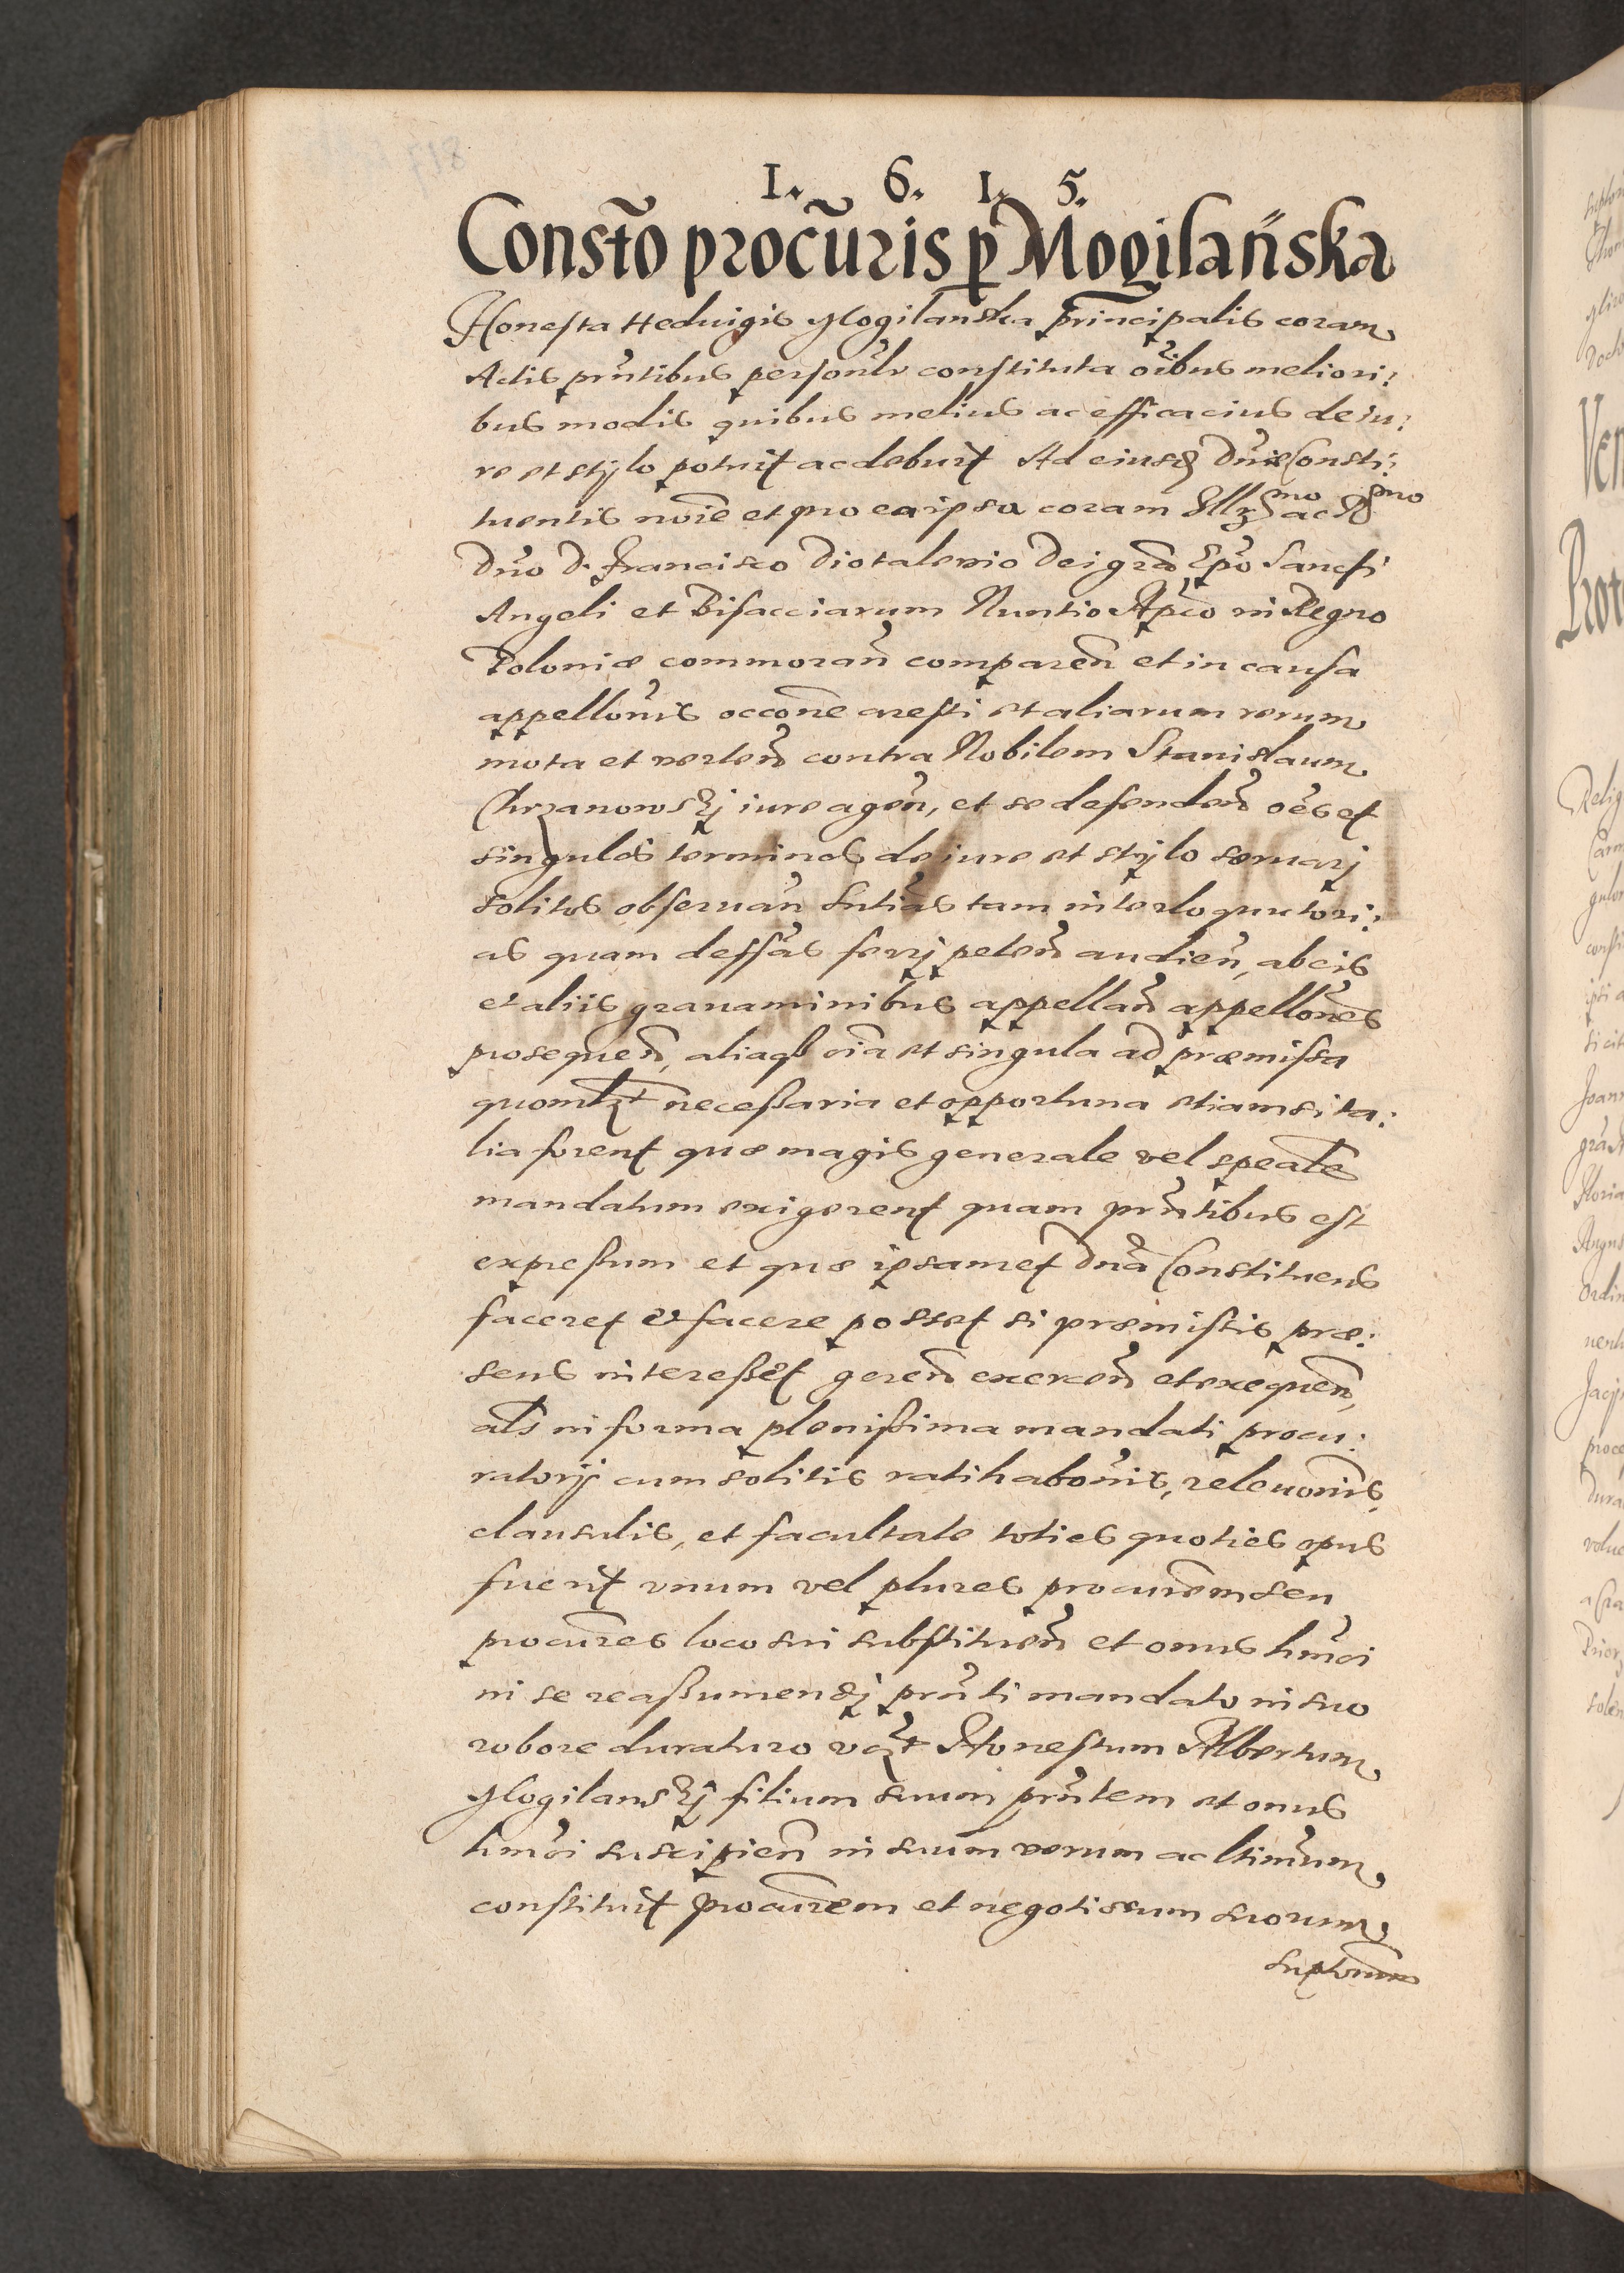 1. 6. 1. 5.
Constõ procũris p Mogilańska
Honesta Hedvigis Mogilanska principalis coram
Actis pñtibus persoñlr constituta oĩbus meliori:
bus modis quibus melius ac efficacius de iu:
re et stylo potuit ac debuit Ad eiusd Dñae Consti:
tuentis noĩe et pro ea ipsa coram Illrmo ac Rmo
Dño D. Francisco Diotalevio Dei grã Epõ Sancti
Angeli et Bisacciarum Nuntio Apĉo in Regno
Poloniæ commorañ compareñ et in causa
appelloñis occõne aresti et aliarum rerum
mota et verteñ contra Nobilem Stanislaum
Chrzanowskj iure ageñ, et se defendeñ oẽs et
singulos terminos de iure et stylo servarj
solitos observañ sñtias tam interloquutori:
as quam deffãs ferrj peteñ audieñ, ab eis
et aliis gravaminibus appellañ appelloñes
prosequeñ, aliaqȝ oĩa et singula ad præmissa
quomlȝt necessaria et opportuna etiamsi ta:
lia forent quæ magis generale vel spẽale
mandatum exigerent quam pñtibus est
expressum et quæ ipsamet Dña Constituens
faceret et facere posset si præmissis præ:
sens interesset gereñ exerceñ et exequeñ,
als in forma plenissima mandati procu:
ratorij cum solitis ratihaboñis, relevoñis
clausulis, et facultate toties quoties opus
fuerit unum vel plures procurẽm seu
procũres loco sui substitueñ et onus hmõi
in se reassumendj pñti mandato in suo
robore duraturo vȝt Honestum Albertum
Mogilanskj filium suum pñtem et onus
hmõi suscipieñ in suum verum ac ltimum
constituit procũrem et negotiorum suorum